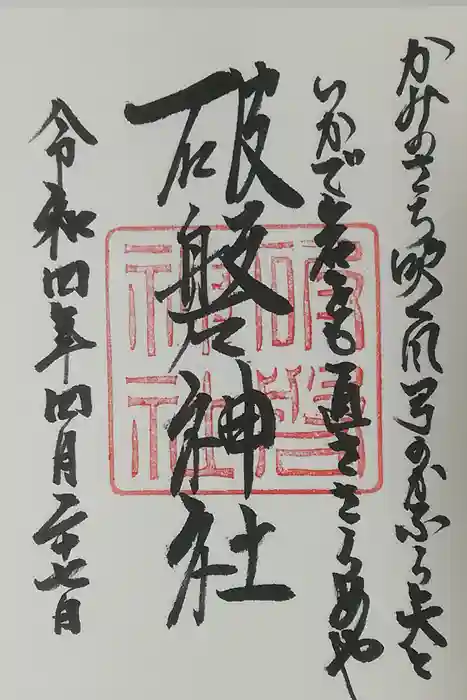 かみのこち吹風弓のかふら矢と
いかで岩をも通ささらめや
破磐神社
破磐
神社
令和四年四月二十七日